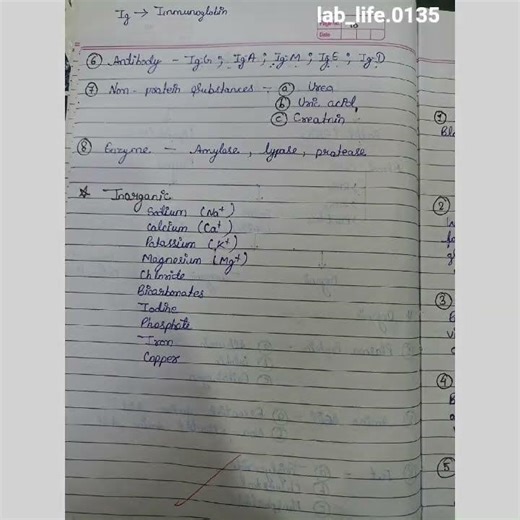 lab_life.0135
Ig → Immunoglobin
Date
⑥ Antibody - Ig.G ; IgA ; Ig.M ; Ig.E ; Ig.D
⑦ Non-protein Substances - ⓐ Urea
ⓑ Uric acid,
ⓒ Creatnin
⑧ Enzyme - Amylase, lypase, protease
* Inorganic
Sodium (Na⁺)
Calcium (Ca⁺)
Potassium (K⁺)
Magnesium (Mg⁺)
Chloride
Bicarbonates
Iodine
Phosphate
Iron
Copper
②
③
④
⑤